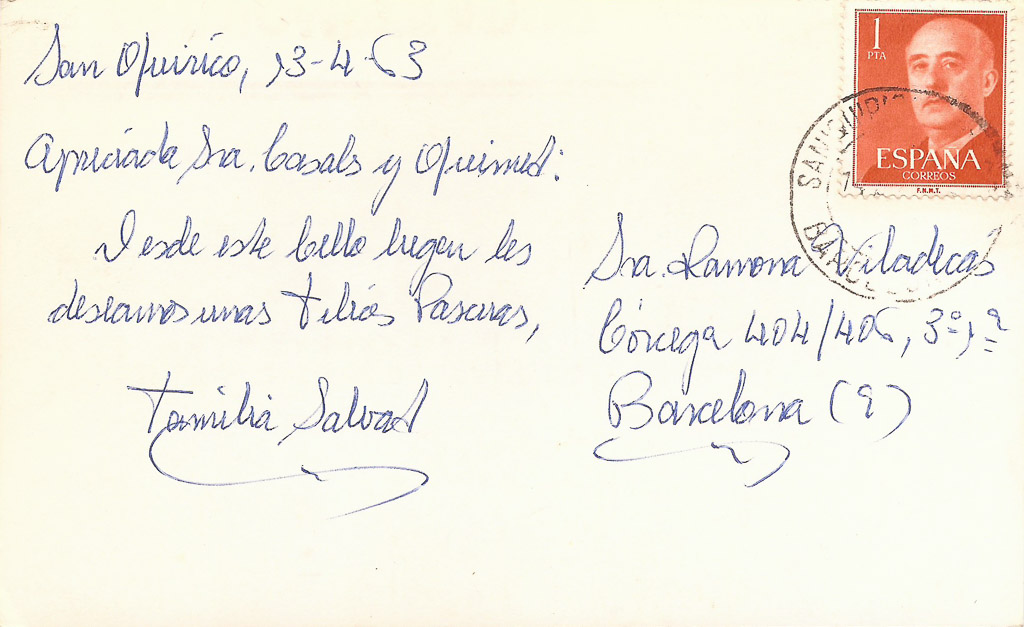 San Quirico, 13-4-63
Apreciada Sra. Casals y Quimet:
Desde este bello lugar les
deseamos unas Felices Pascuas,
Familia Salvat
1
PTA
ESPAÑA
CORREOS
F.N.M.T.
SAN QUIRICO
BARCELONA
Sra. Ramona Viladecàs
Córcega 404/406, 3º, 1ª
Barcelona (9)